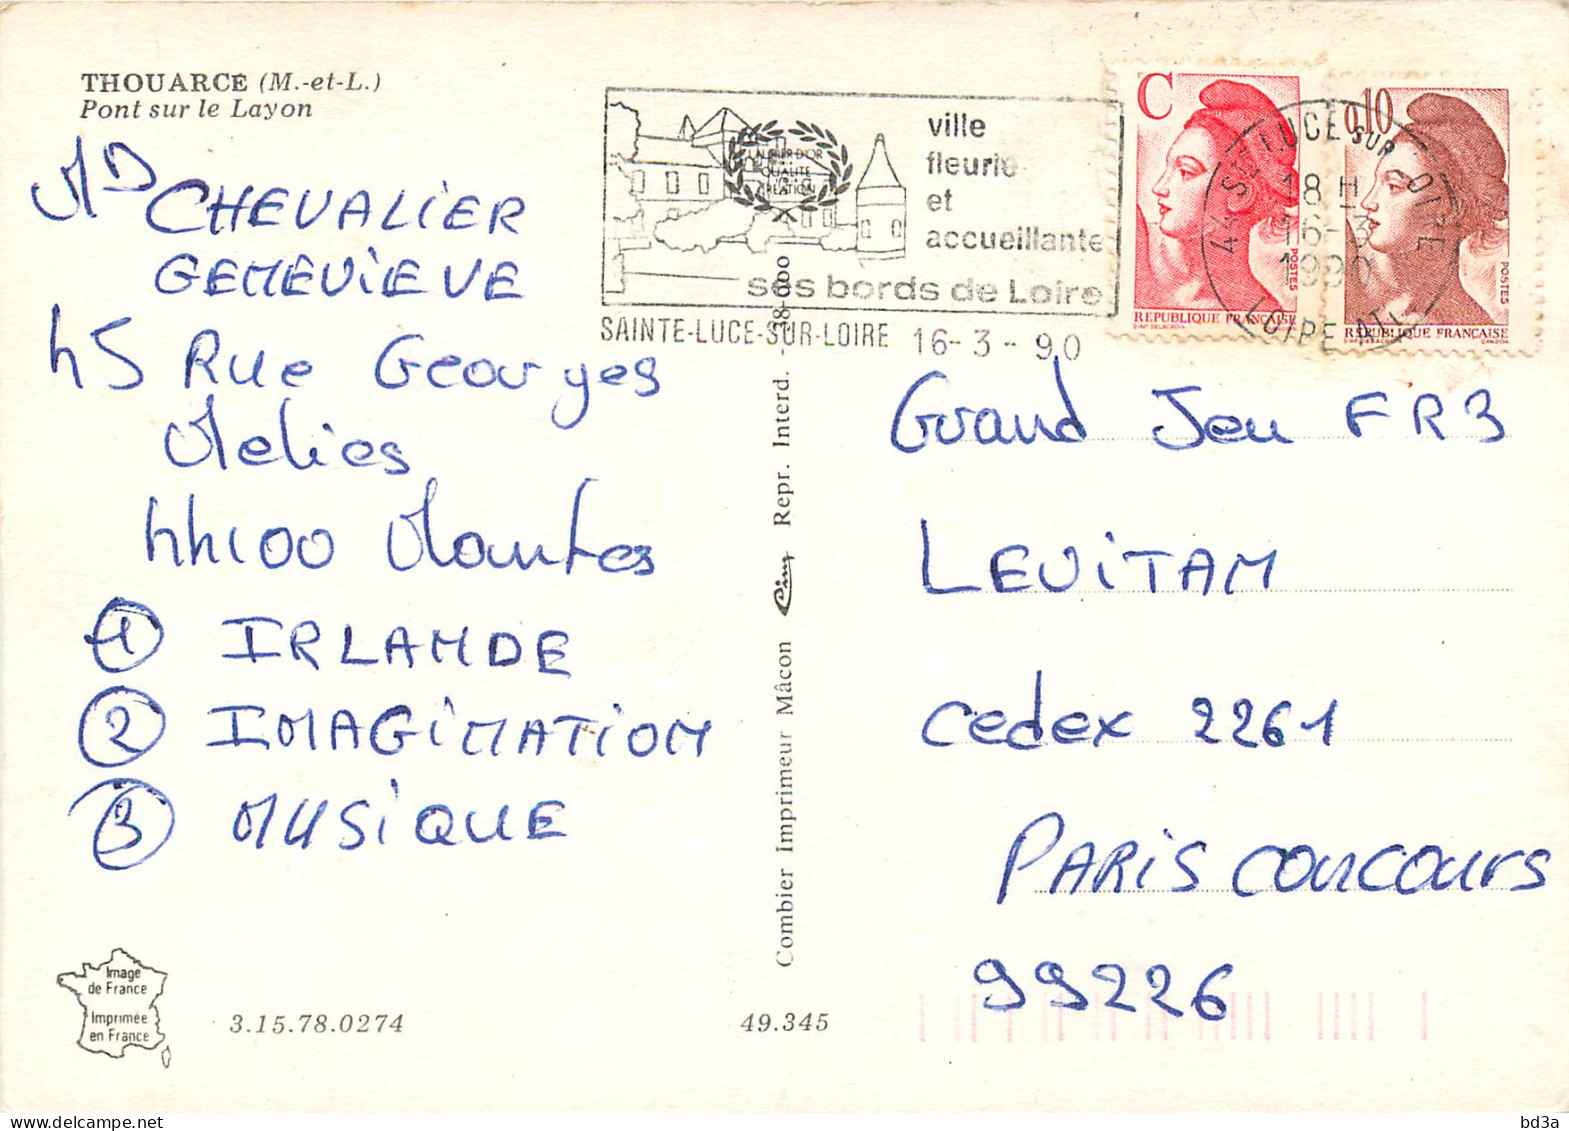 THOUARCE (M.-et-L.)
Pont sur le Layon
Md CHEVALiER
GENEViEVE
45 Rue Georges
Melies
44100 Nantes
① IRLANDE
② IMAGiNATiON
③ MUSiQUE
Image
de France
Imprimée
en France
3.15.78.0274
49.345
Combier Imprimeur Mâcon Cim Repr. Interd.
LAURIER D'OR
QUALITÉ
CREATION
ville
fleurie
et
accueillante
ses bords de Loire
SAINTE-LUCE-SUR-LOIRE 16-3-90
C
REPUBLIQUE FRANÇAISE
POSTES
0,10
REPUBLIQUE FRANÇAISE
POSTES
LUCE SUR LOIRE
18 H
16-3
1990
LOIRE ATL
Grand Jeu FR3
LEViTAN
Cedex 2261
PARiS CONCOURS
99226
bd3a